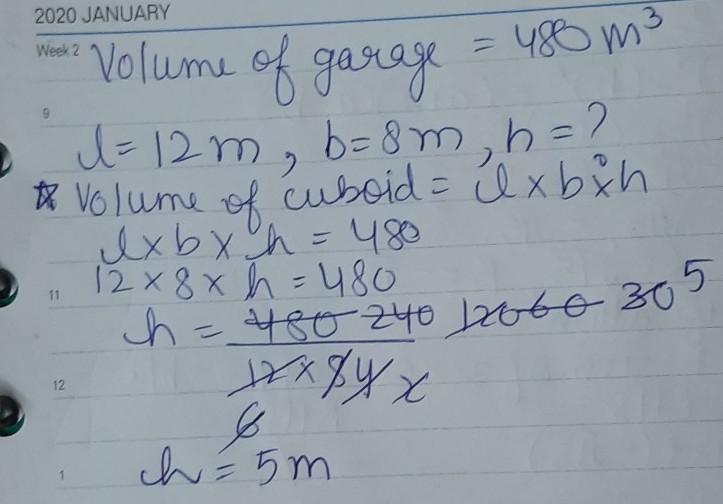 2020 JANUARY
Week 2 Volume of garage = 480 m³
9
l = 12 m, b = 8 m, h = ?
☆ Volume of cuboid = l × b × h
l × b × h = 480
11 12 × 8 × h = 480
h = 480 240 120 60 30 5
12 × 8 4 2
12
6
1 h = 5 m